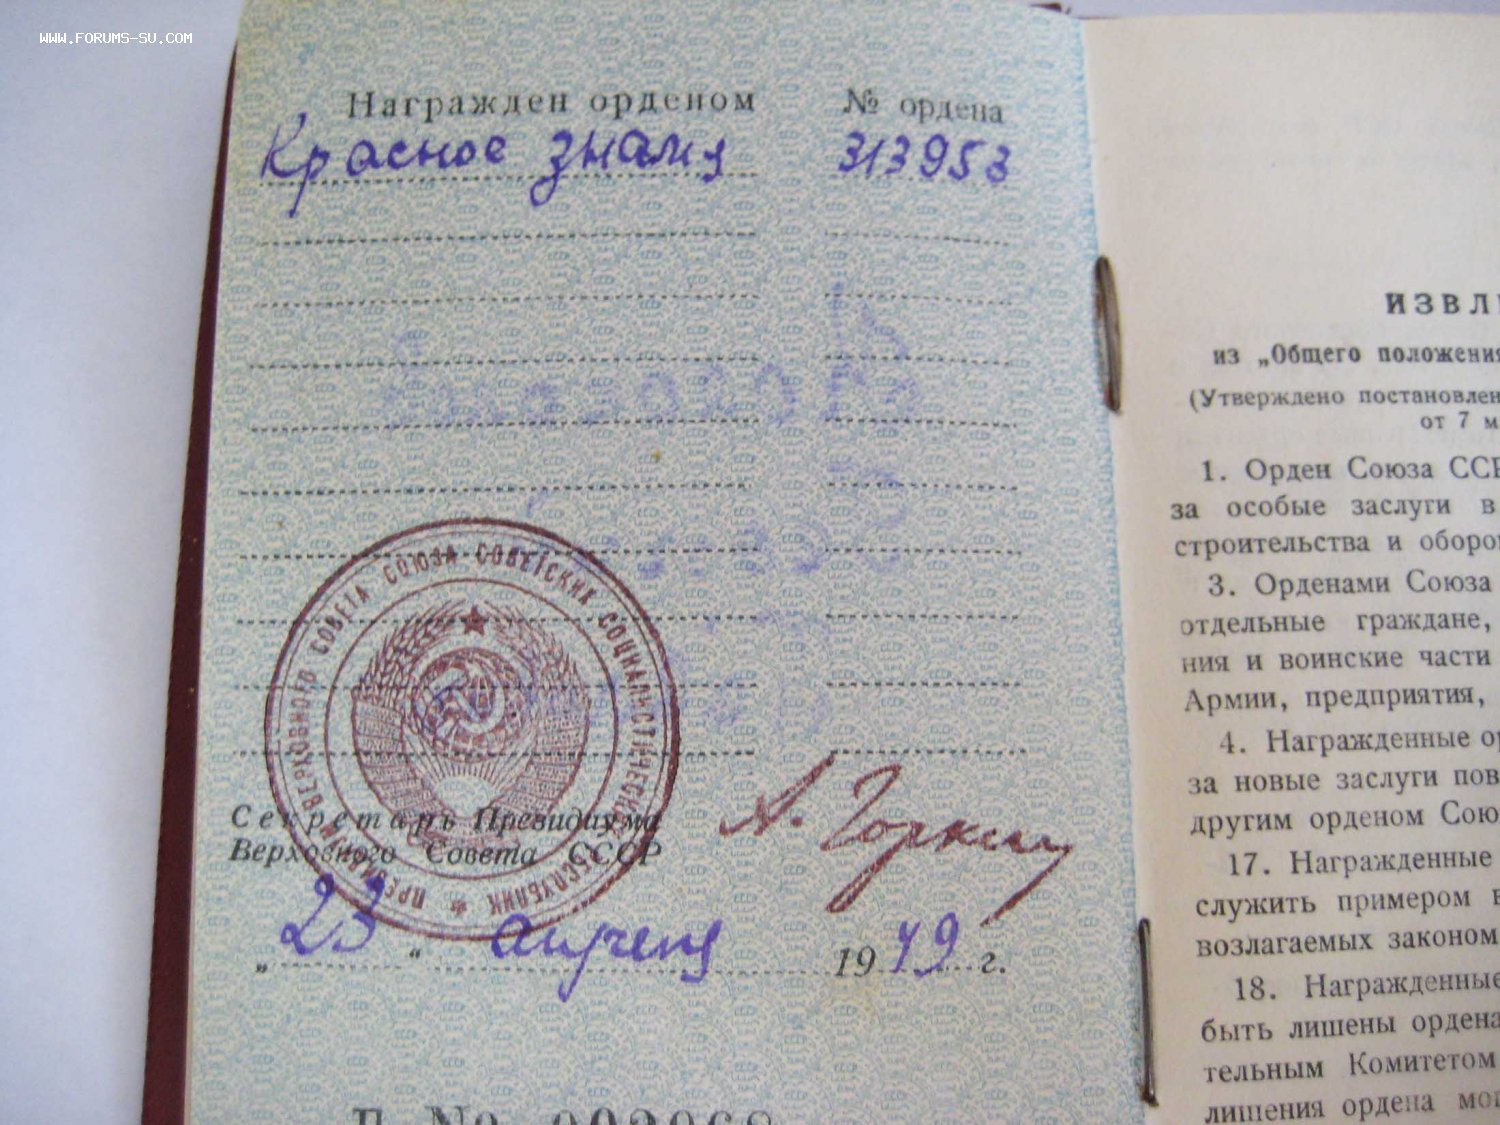 WWW.FORUMS-SU.COM
Награжден орденом № ордена
Красное знамя 313953
ПРЕЗИДИУМ ВЕРХОВНОГО СОВЕТА СОЮЗА СОВЕТСКИХ СОЦИАЛИСТИЧЕСКИХ РЕСПУБЛИК
Секретарь Президиума
Верховного Совета СССР
А. Горкин
„23 “ апреля 1949 г.
№
ИЗВЛ
из „Общего положения
(Утверждено постановлен
от 7 м
1. Орден Союза ССР
за особые заслуги в
строительства и оборо
3. Орденами Союза
отдельные граждане,
ния и воинские части
Армии, предприятия,
4. Награжденные ор
за новые заслуги пов
другим орденом Сою
17. Награжденные
служить примером в
возлагаемых законом
18. Награжденные
быть лишены ордена
тельным Комитетом
лишения ордена мо